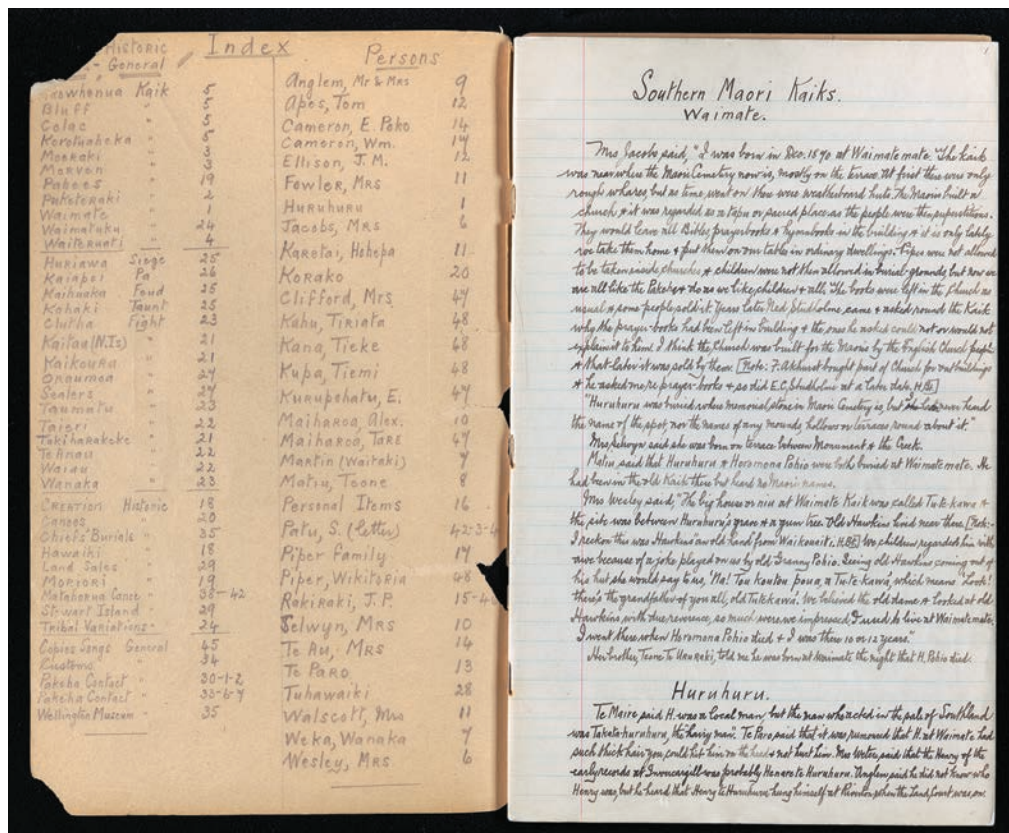 Index
Historic
- General
Kaik 5
Bluff " 5
Colac " 5
Korotuaheka " 5
Moeraki " 3
Merven " 3
Pahees " 19
Puketeraki " 2
Waimate " 1
Waimatuku " 24
Waiteruati 4
Huriawa Siege 25
Kaiapoi Pa 26
Kaihuaka Feud 25
Kohaki Taunt 25
Clutha Fight 23
Kaitaa (N.Is) " 21
Kaikoura " 21
Oraumoa " 24
Sealers " 24
Taumatu " 23
Taieri " 22
Takiharakeke " 21
Te Anau " 22
Waiau " 22
Wanaka " 23
Creation Historic 18
Canoes " 20
Chiefs' Burials " 35
Hawaiki " 18
Land Sales " 29
Moriori " 19
Matahorua Canoe " 38-42
Stewart Island " 29
Tribal Variations " 24
Copies Songs General 45
Customs " 34
Pakeha Contact " 30-1-2
Pakeha Contact " 33-6-7
Wellington Museum " 35
Persons
Anglem, Mr & Mrs 9
Apes, Tom 12
Cameron, E. Poko 14
Cameron, Wm. 14
Ellison, J.M. 12
Fowler, Mrs 11
Huruhuru 1
Jacobs, Mrs 6
Karetai, Hohepa 11
Korako 20
Clifford, Mrs 47
Kahu, Tiriata 48
Kana, Tieke 48
Kupa, Tiemi 48
Kurupohatu, E. 47
Maiharoa, Alex. 10
Maiharoa, Tare 47
Martin (Waitaki) 7
Matiu, Teone 8
Personal Items 16
Patu, S. (Letter) 42-3-4
Piper Family 17
Piper, Wikitoria 48
Rakiraki, J.P.
Selwyn, Mrs 10
Te Au, Mrs 14
Te Paro 13
Tuhawaiki 28
Walscott, Mrs 11
Weka, Wanaka 7
Wesley, Mrs 6
1
Southern Maori Kaiks.
Waimate.
Mrs Jacobs said, "I was born in Dec. 1870 at Waimatemate. "The kaik
was near where the Maori Cemetery now is, mostly on the terrace. At first there were only
rough whares, but as time went on there were weatherboard huts. The Maoris built a
church, & it was regarded as a tapu or sacred place as the people were then superstitious.
They would leave all Bibles, prayerbooks & hymnbooks in the building & it is only lately
we take them home & put them on our tables in ordinary dwellings. Pipes were not allowed
to be taken inside churches, & children were not then allowed in burial-grounds, but now we
are all like the Pakeha & do as we like, children & all. The books were left in the Church as
usual & some people sold it. Years later Ned Studholme came & asked round the Kaik
why the prayer-books had been left in building & the ones he asked could not or would not
explain it to him. I think the Church was built for the Maoris by the English Church people
& that later it was sold by them. [Note: F. Akhurst bought part of Church for outbuildings
& he asked me re prayer-books & so did E.C. Studholme at a later date. H.B.]
"Huruhuru was buried where memorial stone is in Maori Cemetery is, but never heard
the name of the spot, nor the names of any mounds, hollows or terraces round about it."
Mrs Selwyn said she was born on terrace between Monument & the Creek.
Matiu said that Huruhuru & Horomona Pohio were both buried at Waimatemate. He
had been in the old Kaik there but heard no Maori names.
Mrs Wesley said, "The big house or nia at Waimate Kaik was called Tutekawa &
the site was between Huruhuru's grave & a gum tree. Old Hawkins lived near there. [Note:-
I reckon this was Hawkins 'an old hand' from Waikouaiti. H.B.] We children regarded him with
awe because of a joke played on us by old Granny Pohio. Seeing old Hawkins coming out of
his hut she would say to us, 'Na! Tou koutou poua, a Tutekawa', which means 'Look!
there's the grandfather of you all, old Tutekawa'. We believed the old dame & looked at old
Hawkins with due reverence, so much were we impressed. I used to live at Waimatemate.
I went there when Horomona Pohio died & I was there 10 or 12 years."
Her brother, Teone Te Hauraki, told me he was born at Waimate the night that H. Pohio died.
Huruhuru.
Te Maire said H. was a local man, but the man who acted in the sale of Southland
was Takata-huruhuru, the 'hairy man'. Te Paro said that it was rumored that H. at Waimate had
such thick hair you could hit him on the head & not hurt him. Mrs Weter said that the Henry of the
early records at Invercargill was probably Henare te Huruhuru. Anglem said he did not know who
Henry was, but he heard that Henry te Huruhuru hung himself at Riverton when the Land Court was on.